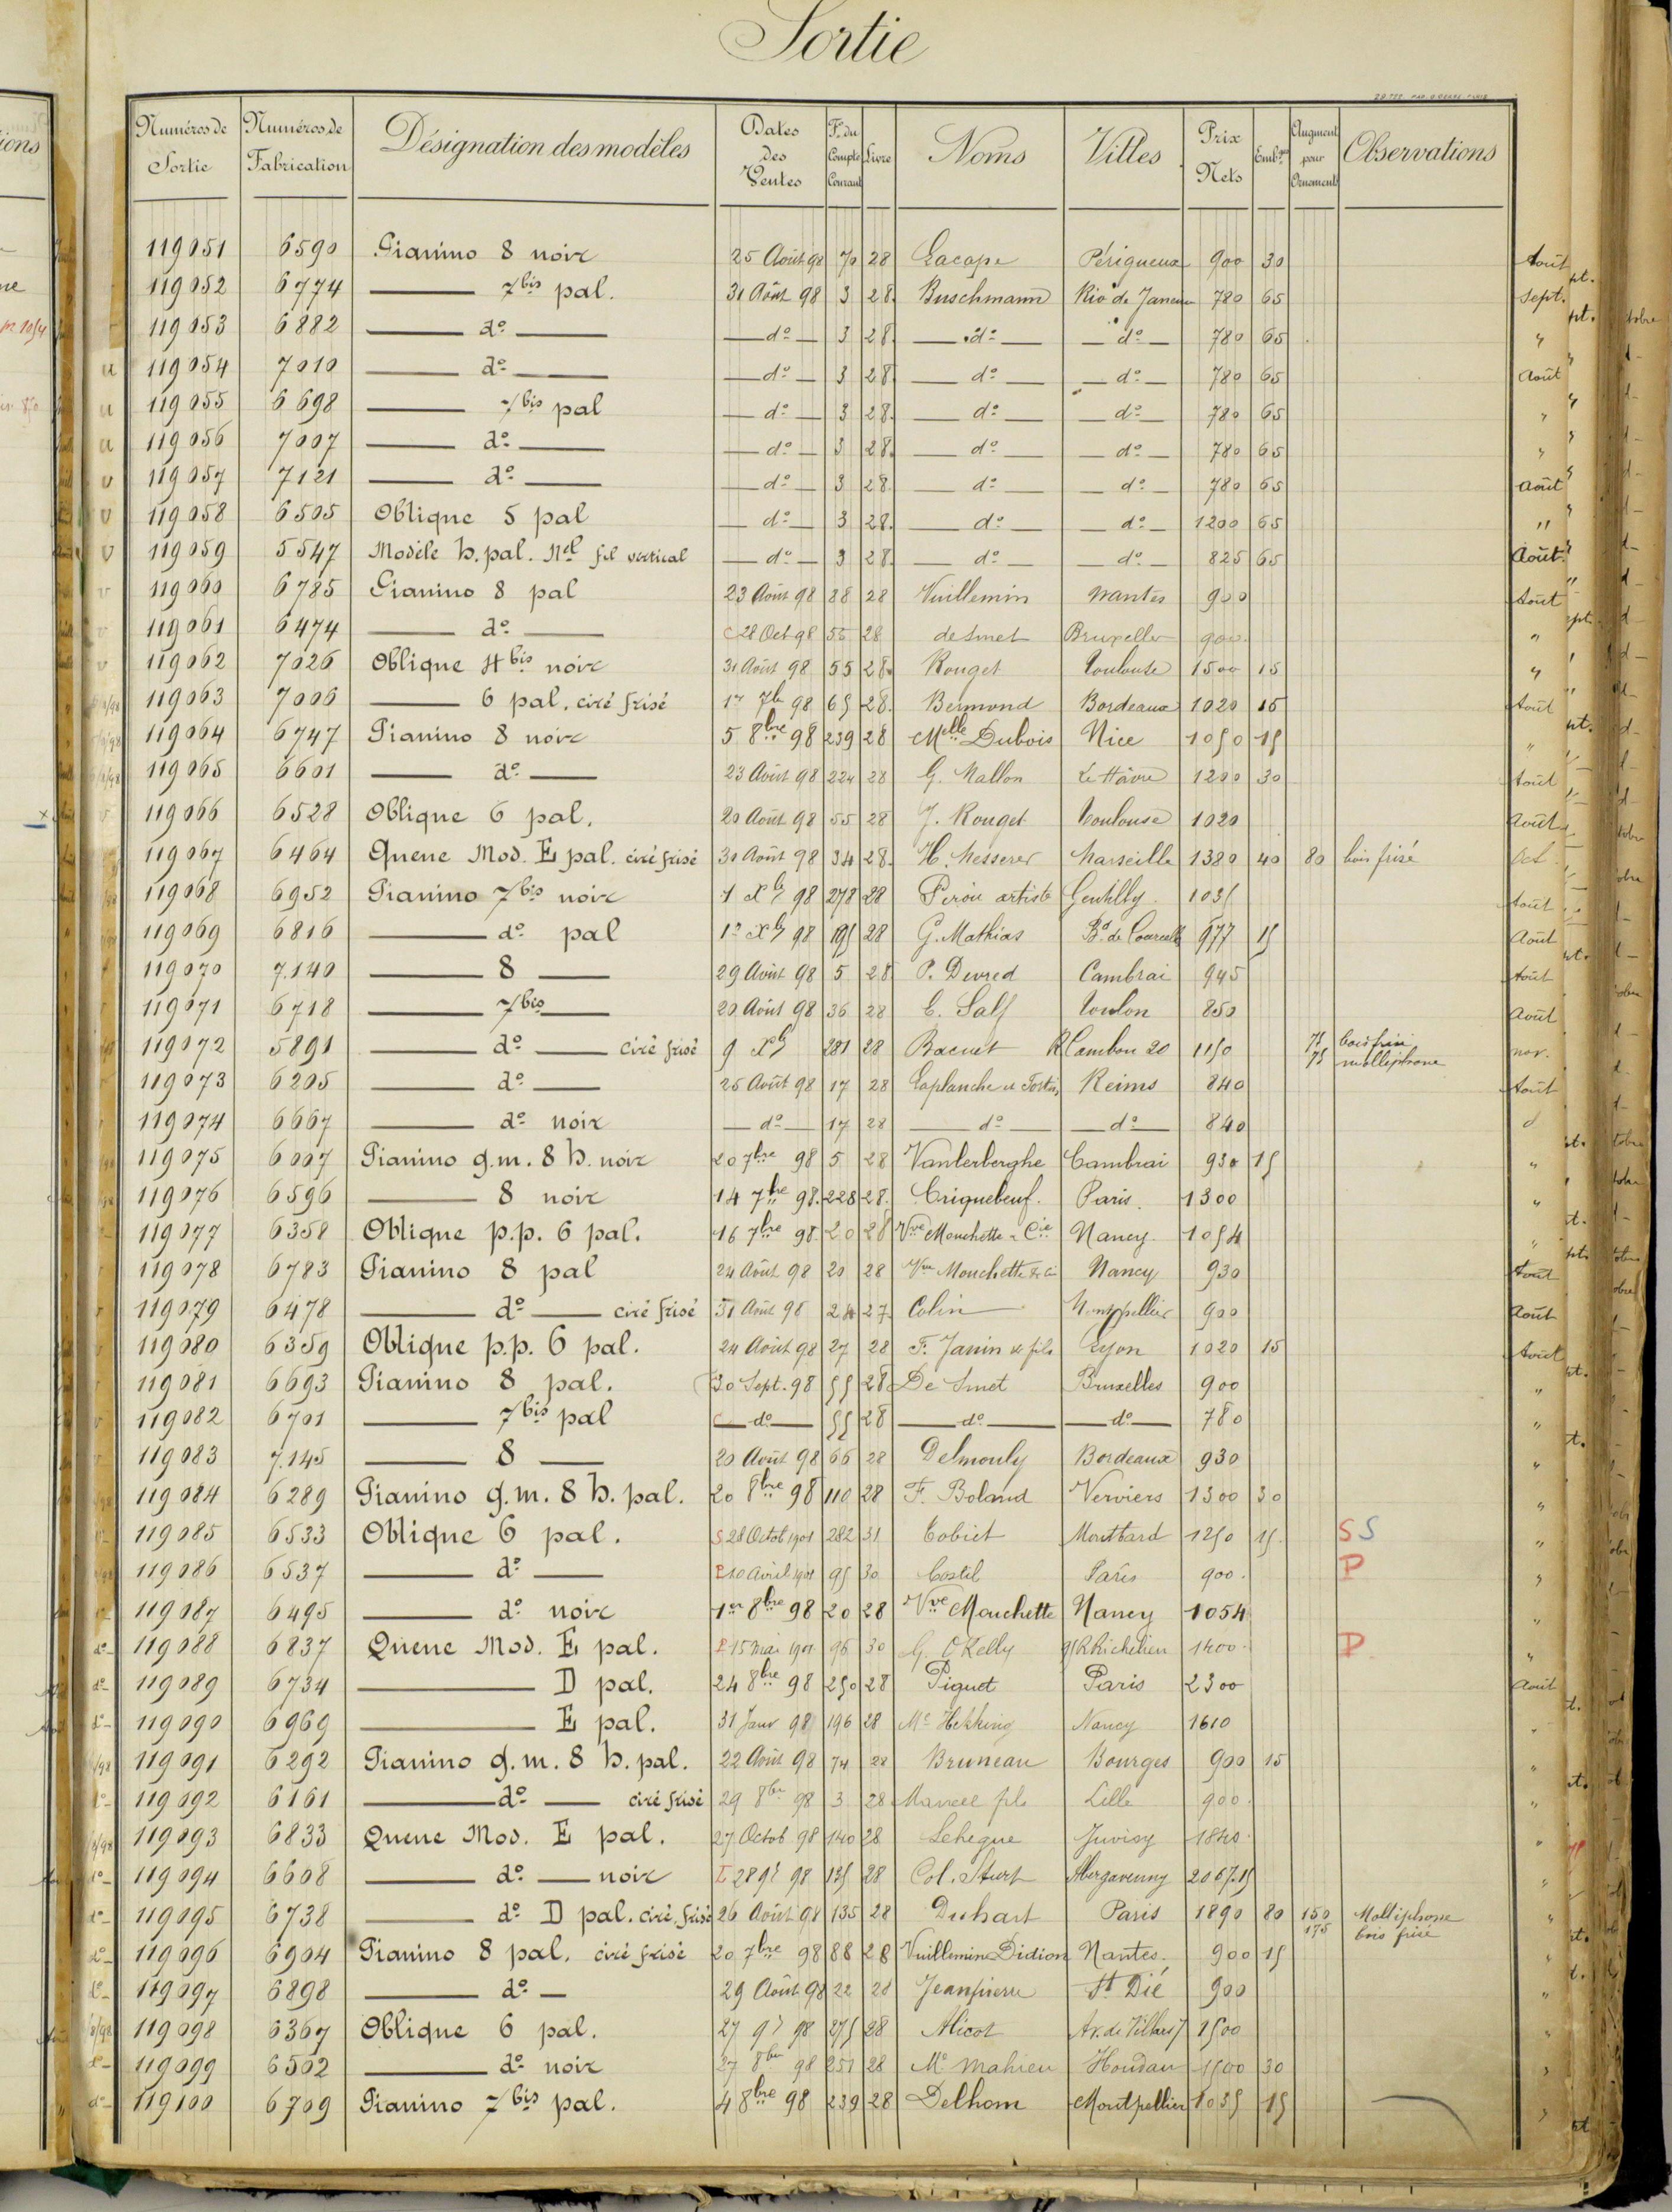 Sortie
Numéros de Sortie | Numéros de Fabrication | Désignation des modèles | Dates des Ventes | F.º du Compte Courant | Livre | Noms | Villes | Prix Nets | Emb.ge | Augment. pour Ornements | Observations
119051 6590 Pianino 8 noir 25 Août 98 70 28 Lacape Périgueux 900 30 Août
119052 6774 — 7bis pal. 31 Août 98 3 28 Buschmann Rio de Janeiro 780 65 Sept.
119053 6882 — dº — — dº — 3 28 — dº — — dº — 780 65 "
119054 7010 — dº — — dº — 3 28 — dº — — dº — 780 65 Août
119055 6698 — 7bis pal — dº — 3 28 — dº — — dº — 780 65 "
119056 7007 — dº — — dº — 3 28 — dº — — dº — 780 65 "
119057 7121 — dº — — dº — 3 28 — dº — — dº — 780 65 Août
119058 6505 Oblique 5 pal — dº — 3 28 — dº — — dº — 1200 65 "
119059 5547 Modèle h. pal. Nel fil vertical — dº — 3 28 — dº — — dº — 825 65 Août
119060 6785 Pianino 8 pal 23 Août 98 88 28 Vuillemin Nantes 900 Août
119061 6474 — dº — C 28 Oct 98 55 28 de Smet Bruxelles 900 "
119062 7026 Oblique 4bis noir 31 Août 98 55 28 Rouget Toulouse 1500 15 "
119063 7006 — 6 pal. ciré frisé 1er 7bre 98 65 28 Bermond Bordeaux 1020 15 Août
119064 6747 Pianino 8 noir 5 8bre 98 239 28 Melle Dubois Nice 1050 15 "
119065 6601 — dº — 23 Août 98 224 28 G. Mallon Le Hâvre 1200 30 Août
119066 6528 Oblique 6 pal. 20 Août 98 55 28 J. Rouget Toulouse 1020 Août
119067 6464 Queue Mod. E pal. ciré frisé 30 Août 98 34 28 H. Messerer Marseille 1380 40 80 bois frisé Oct
119068 6952 Pianino 7bis noir 1 Xb 98 278 28 artiste Gentilly 1035 Août
119069 6816 — dº pal 1er Xb 98 195 28 G. Mathias Bd. de Courcelle 977 15 Août
119070 7.140 — 8 — 29 Août 98 5 28 P. Devred Cambrai 945 Août
119071 6718 — 7bis — 20 Août 98 36 28 Toulon 850 Août
119072 5891 — dº — ciré frisé 9 Xb 281 28 Bacuet R Cambon 20 1150 75 bois frisé nov.
75 molliphone
119073 6205 — dº — 25 Août 98 17 28 Laplanche et Fortin Reims 840 Août
119074 6667 — dº noir — dº — 17 28 — dº — — dº — 840 d
119075 6007 Pianino g.m. 8 h. noir 20 7bre 98 5 28 Vanterberghe Cambrai 930 15 "
119076 6596 — 8 noir 14 7bre 98. 228 28. Criquebeuf. Paris. 1300 "
119077 6358 Oblique p.p. 6 pal. 16 7bre 98. 20 28 Vve Mouchette & Cie Nancy 1054 "
119078 6783 Pianino 8 pal 24 Août 98 20 28 Vve Mouchette & Cie Nancy 930 Août
119079 6478 — dº — ciré frisé 31 Août 98 24 27 Colin Montpellier 900 Août
119080 6359 Oblique p.p. 6 pal. 24 Août 98 27 28 F. Janin & fils Lyon 1020 15 Août
119081 6693 Pianino 8 pal. 30 Sept. 98 55 28 De Smet Bruxelles 900 "
119082 6701 — 7bis pal — dº — 55 28 — dº — — dº — 780 "
119083 7.145 — 8 — 20 Août 98 66 28 Delmouly Bordeaux 930 "
119084 6289 Pianino g.m. 8 h. pal. 20 8bre 98 110 28 F. Boland Verviers 1300 30 "
119085 6533 Oblique 6 pal. S 28 Octob 1901 282 31 Montbard 1250 15 S S "
119086 6537 — dº — P 10 Avril 1901 95 30 Costil Paris 900 P "
119087 6495 — dº noir 1er 8bre 98 20 28 Vve Mouchette Nancy 1054 "
119088 6837 Queue Mod. E pal. P 15 Mai 1901 96 30 G. OKelly 95 R Richelieu 1400 P "
119089 6734 — D pal. 24 8bre 98 250 28 Piquet Paris 2300 Août
119090 6969 — E pal. 31 Janv 98 196 28 Me Hekking Nancy 1610 "
119091 6292 Pianino g.m. 8 h. pal. 22 Août 98 74 28 Bruneau Bourges 900 15 "
119092 6161 — dº — ciré frisé 29 8bre 98 3 28 fils Lille 900 "
119093 6833 Queue Mod. E pal. 27 Octob 98 140 28 Lehegue Juvisy 1840 "
119094 6608 — dº — noir 28 9b 98 135 28 Col. Sturt Abergavenny 2067.15 "
119095 6738 — dº D pal. ciré frisé 26 Août 98 135 28 Duhart Paris 1890 80 150 Molliphone "
175 bois frisé
119096 6904 Pianino 8 pal. ciré frisé 20 7bre 98 88 28 Vuillemin Didion Nantes. 900 15 "
119097 6898 — dº — 29 Août 98 22 28 Jeanpierre St Dié 900 "
119098 6367 Oblique 6 pal. 27 9b 98 275 28 Alicot Av. de Villiers 1500 "
119099 6502 — dº noir 27 8bre 98 251 28 Me Mahieu Houdan 1500 30 "
119100 6709 Pianino 7bis pal. 4 8bre 98 239 28 Delhom Montpellier 1035 15 "